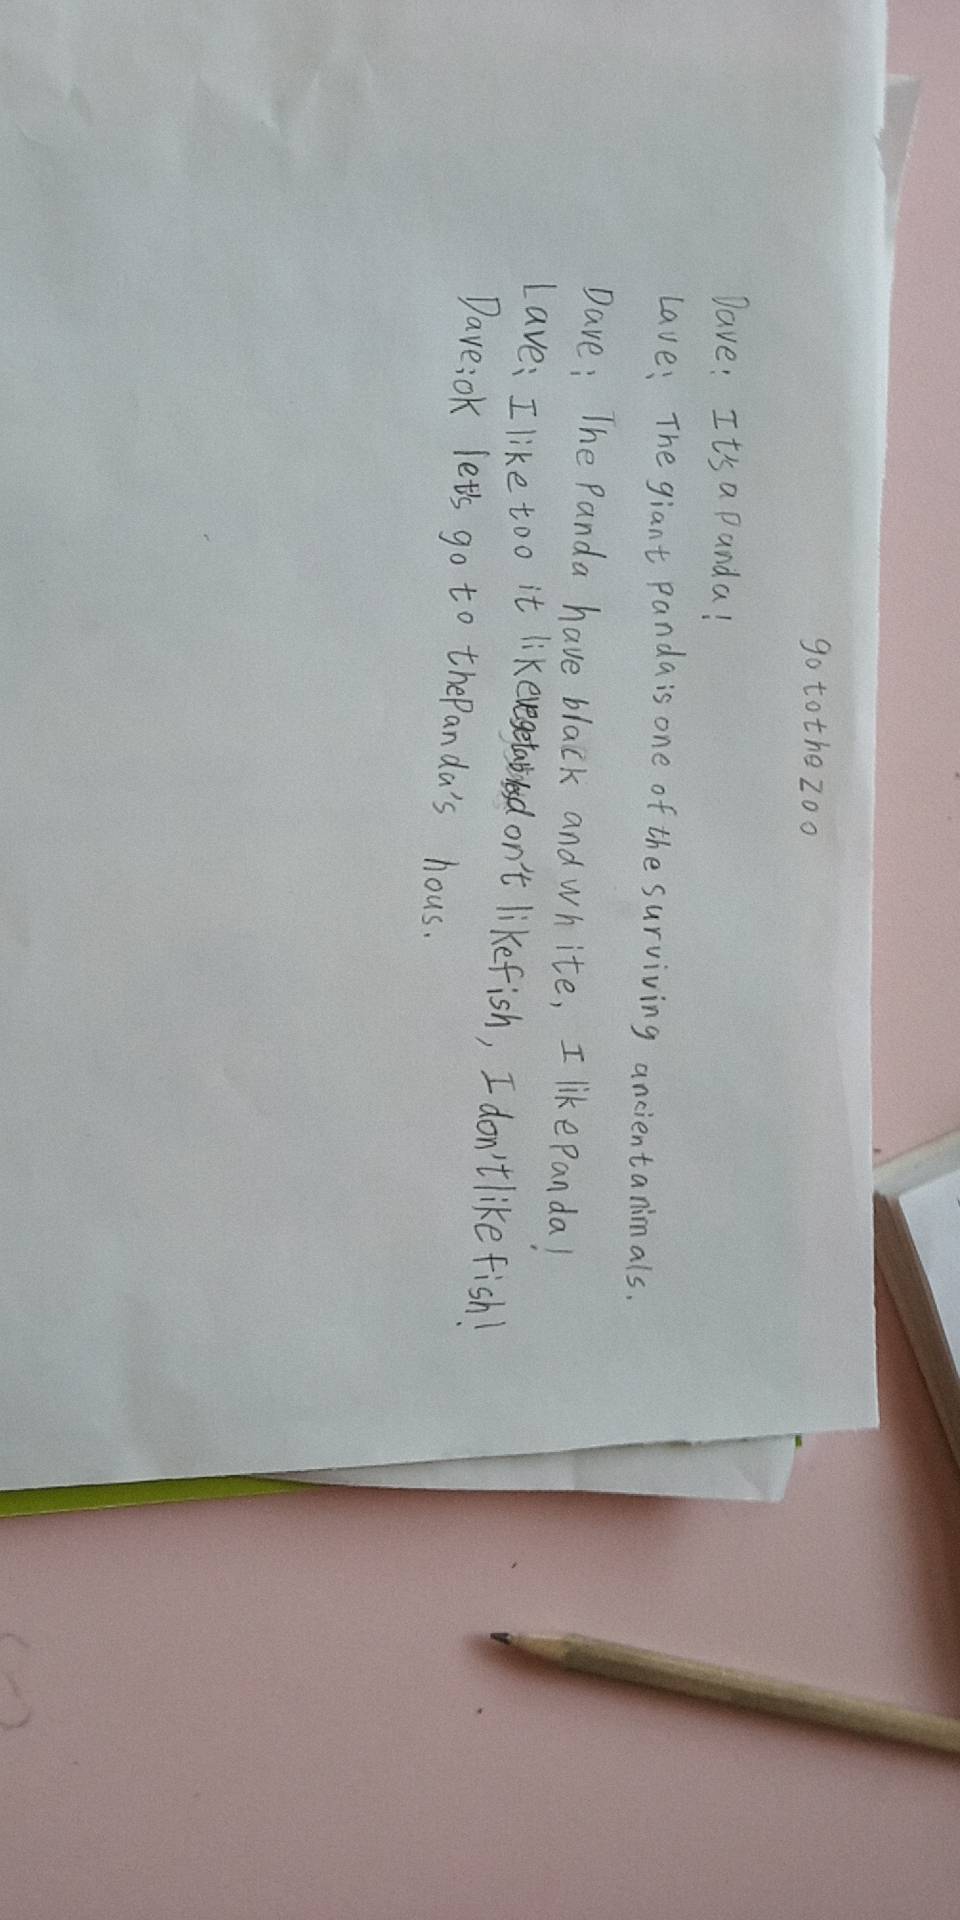 go to the zoo
Dave: It's a panda!
Lave: The giant panda is one of the surviving ancient animals.
Dave: The Panda have black and white, I like Panda!
Lave: I like too it like vegetables don't like fish, I don't like fish!
Dave: ok let's go to the Panda's hous.